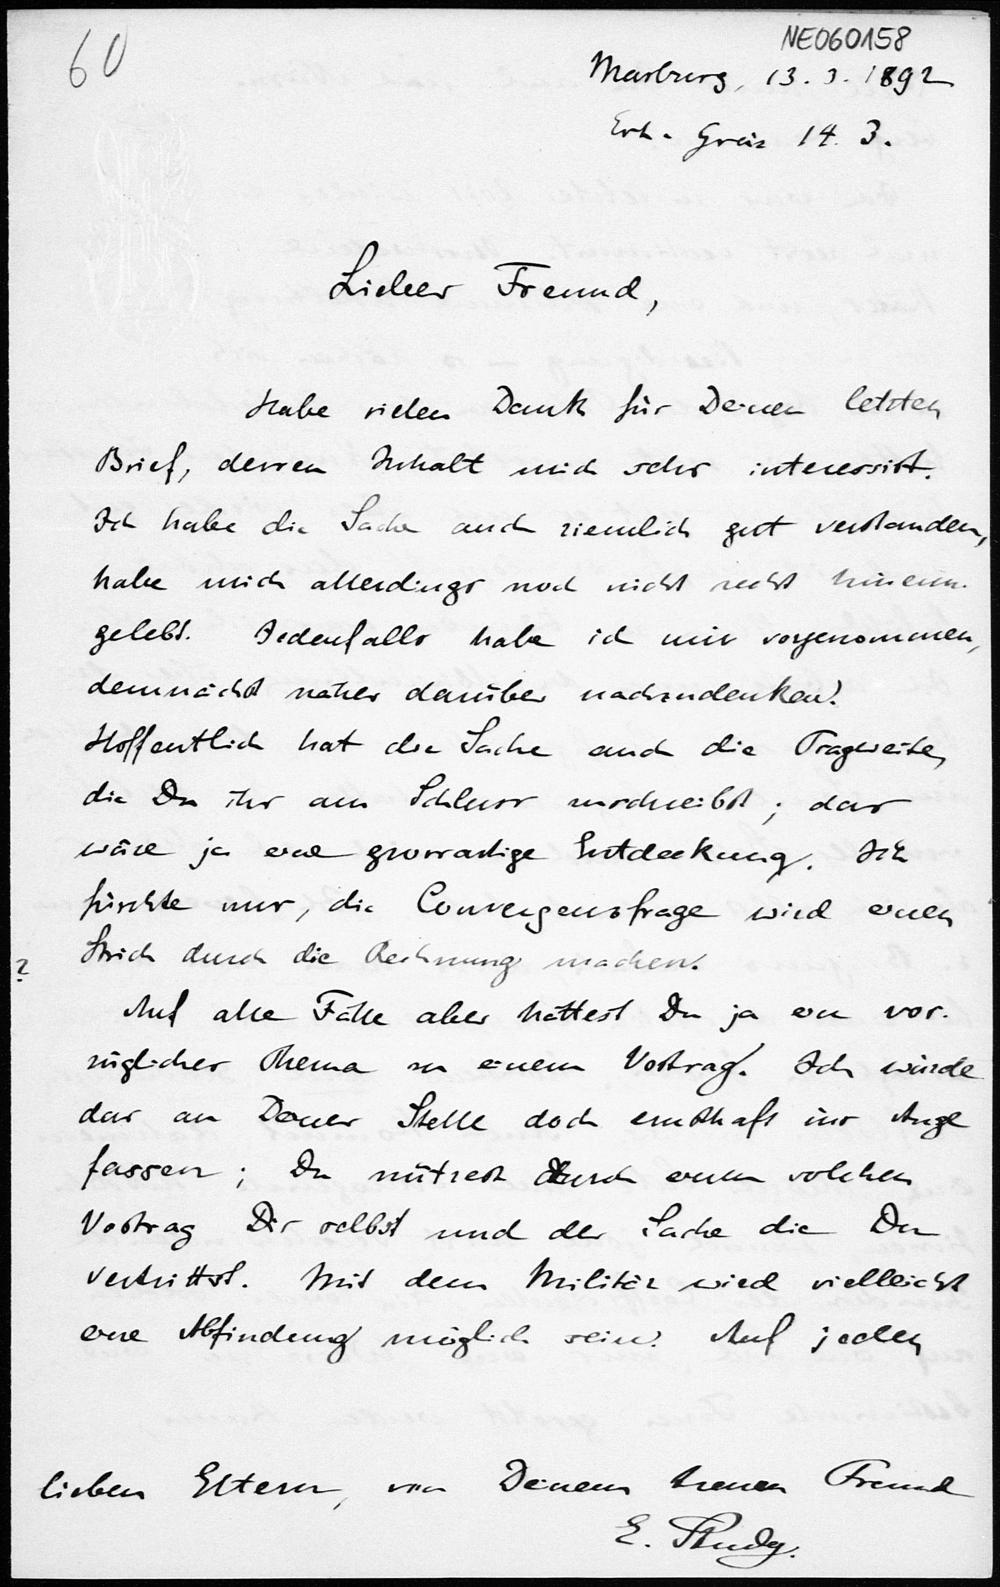 60
NE060158
Marburg, 13. 3. 1892
Erh. Greiz 14. 3.
Lieber Freund,
Habe vielen Dank für Deinen letzten
Brief, dessen Inhalt mich sehr interessirt.
Ich habe die Sache auch ziemlich gut verstanden,
habe mich allerdings noch nicht recht hinein-
gelebt. Jedenfalls habe ich mir vorgenommen,
demnächst näher darüber nachzudenken.
Hoffentlich hat die Sache auch die Tragweite,
die Du ihr am Schluss zuschreibst; das
wäre ja eine grossartige Entdeckung. Ich
fürchte nur, die Convergenzfrage wird einen
Strich durch die Rechnung machen.
?
Auf alle Fälle aber hättest Du ja ein vor-
zügliches Thema zu einem Vortrag. Ich würde
das an Deiner Stelle doch ernsthaft ins Auge
fassen; Du nützest durch einen solchen
Vortrag Dir selbst und der Sache die Du
vertrittst. Mit dem Militär wird vielleicht
eine Abfindung möglich sein. Auf jeden
lieben Eltern, von Deinem treuen Freund
E. Study.